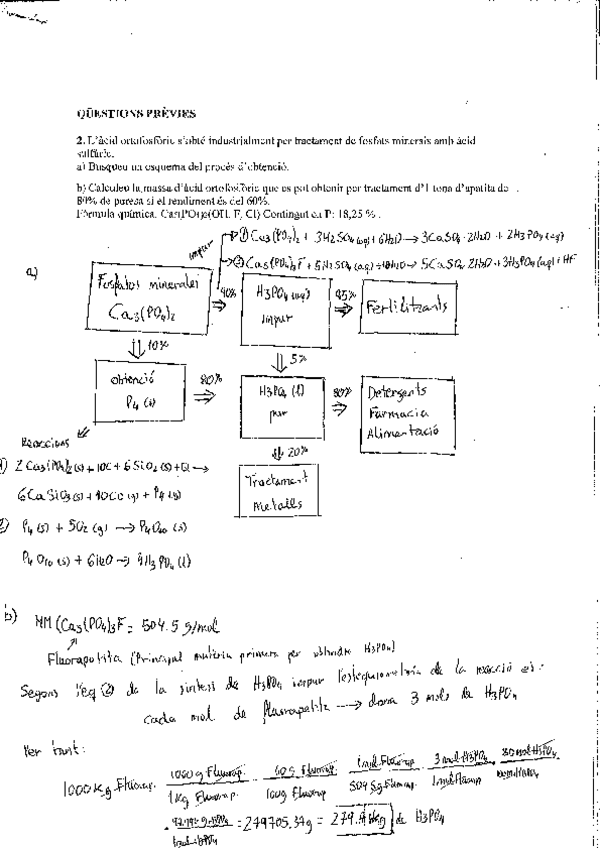 QÜESTIONS PRÈVIES
2. L'àcid ortofosfòric s'obté industrialment per tractament de fosfats minerals amb àcid
sulfúric.
a) Busqueu un esquema del procés d'obtenció.
b) Calculeu la massa d'àcid ortofosfòric que es pot obtenir per tractament d'1 tona d'apatita de
80% de puresa si el rendiment és del 60%.
Fórmula química. Ca5(PO4)3(OH, F, Cl) Contingut en P: 18,25 %.
impur
① Ca3(PO4)2 + 3H2SO4 (aq) + 6H2O → 3CaSO4·2H2O + 2H3PO4 (aq)
② Ca5(PO4)3F + 5H2SO4 (aq) + 10H2O → 5CaSO4 2H2O + 3H3PO4 (aq) + HF
a)
Fosfatos minerales
Ca3(PO4)2
90%
H3PO4 (aq)
impur
95%
Fertilitzants
10%
5%
obtenció
P4 (s)
80%
H3PO4 (l)
pur
80%
Detergents
Farmacia
Alimentació
20%
Tractament
Metalls
Reaccions
2 Ca3(PO4)2 (s) + 10C + 6SiO2 (s) →
6CaSiO3 (s) + 10CO (g) + P4 (s)
P4 (s) + 5O2 (g) → P4O10 (s)
P4O10 (s) + 6H2O → 4H3PO4 (l)
b) MM (Ca5(PO4)3F = 504.5 g/mol
Fluorapatita (Principal matèria primera per obtindre H3PO4)
Segons l'eq ② de la síntesi de H3PO4 impur l'estequiometria de la reacció és:
cada mol de fluorapatita → dona 3 mols de H3PO4
Per tant:
1000 Kg Fluorap. 1000 g Fluorap. 60 g Fluorap. 1 mol Fluorap. 3 mol H3PO4
1 Kg Fluorap. 100 g Fluorap 504.5 g Fluorap. 1 mol Fluorap
= 279705.37g = de H3PO4